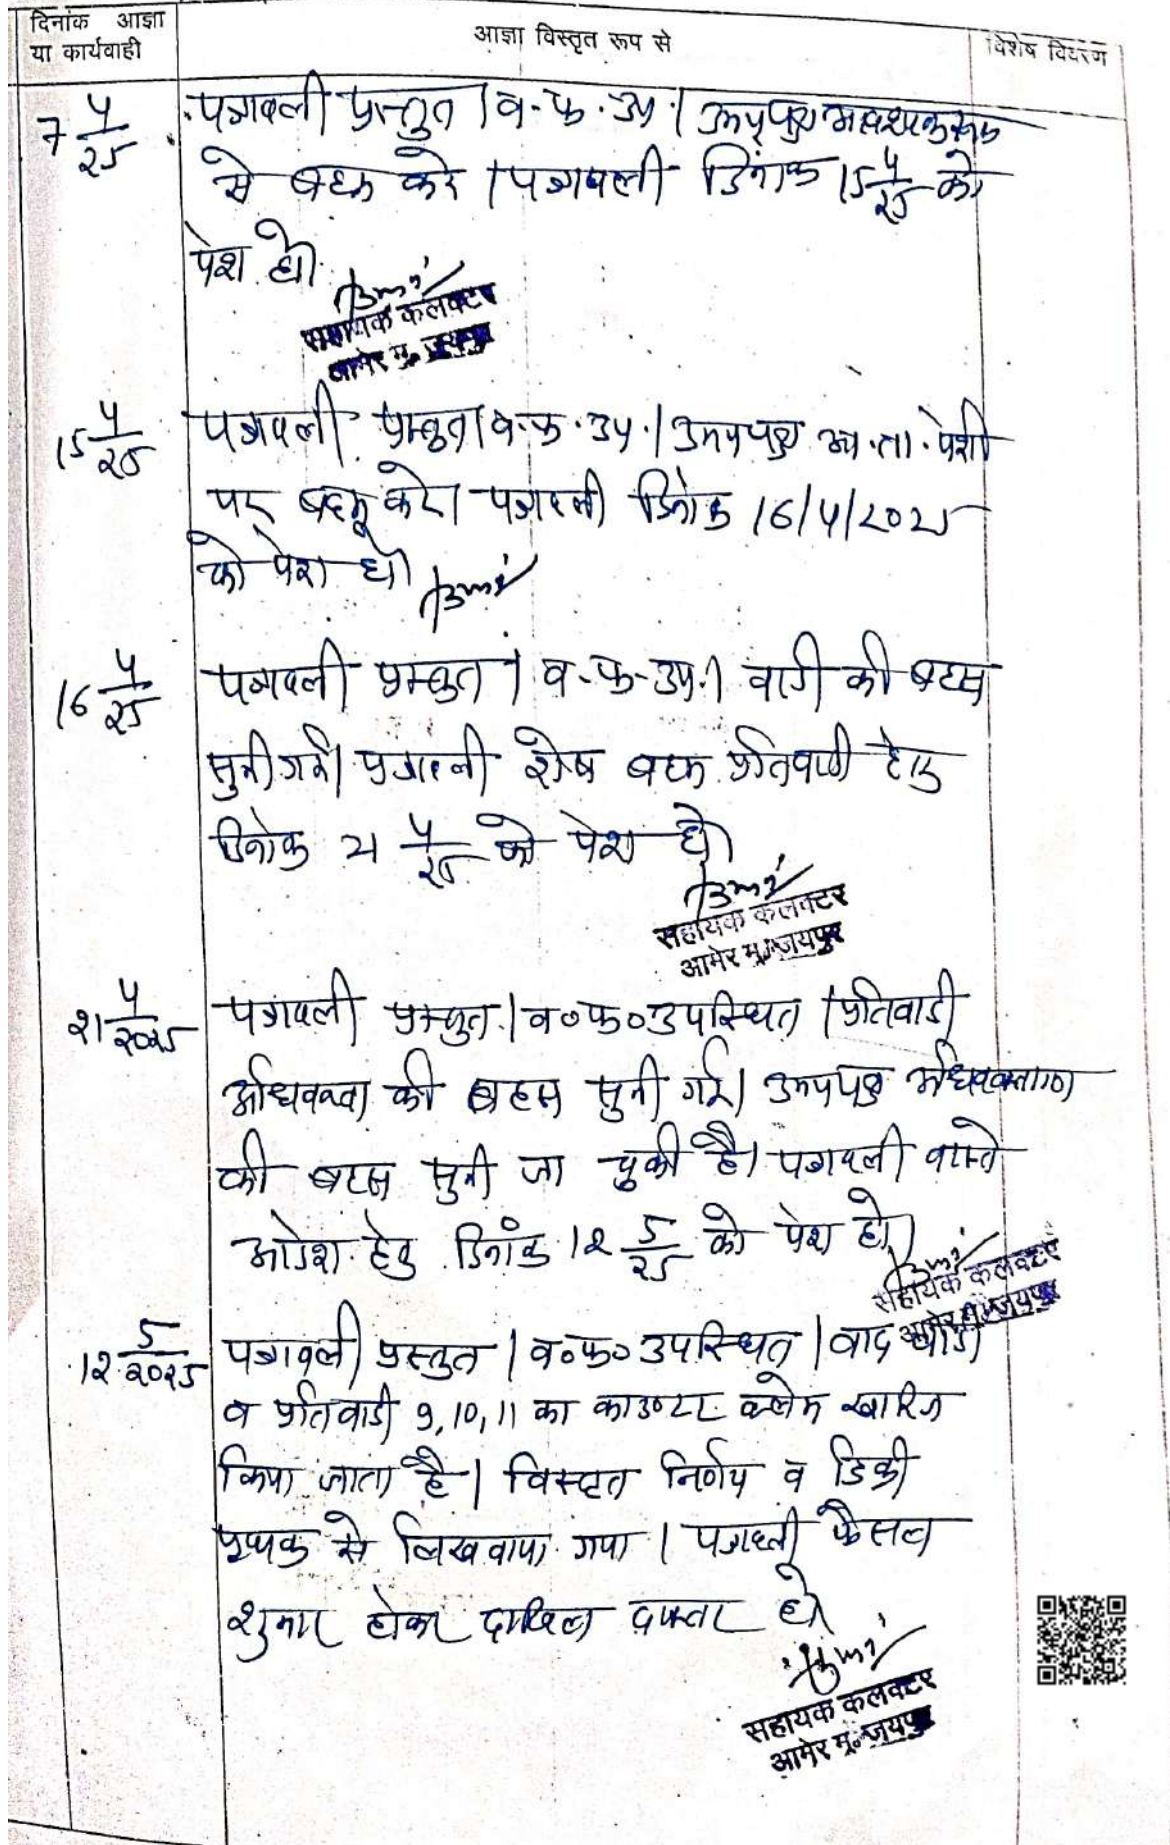 दिनांक आज्ञा
या कार्यवाही
आज्ञा विस्तृत रूप से
विशेष विवरण
7 4/25
पत्रावली प्रस्तुत । व.फ.उप. । उभयपक्ष आवश्यक रूप
से बहस करे । पत्रावली दिनांक 15 4/25 को
पेश हो
सहायक कलक्टर
आमेर मु. जयपुर
15 4/25
पत्रावली प्रस्तुत । व.फ.उप. । उभयपक्ष ता. पेशी
पर बहस करे। पत्रावली दिनांक 16/4/2025
को पेश हो
16 4/25
पत्रावली प्रस्तुत । व.फ.उप. । वादी की बहस
सुनी गई। पत्रावली शेष बहस प्रतिवादी हेतु
दिनांक 21 4/25 को पेश हो
सहायक कलक्टर
आमेर मु. जयपुर
21 4/2025
पत्रावली प्रस्तुत । व०फ० उपस्थित । प्रतिवादी
अधिवक्ता की बहस सुनी गई। उभयपक्ष अधिवक्तागण
की बहस सुनी जा चुकी है। पत्रावली वास्ते
आदेश हेतु दिनांक 12 5/25 को पेश हो।
सहायक कलक्टर
आमेर मु. जयपुर
12 5/2025
पत्रावली प्रस्तुत । व०फ० उपस्थित । वाद वादी
व प्रतिवादी 9, 10, 11 का काउण्टर क्लेम खारिज
किया जाता है । विस्तृत निर्णय व डिक्री
पृथक से लिखवाया गया । पत्रावली फैसल
शुमार होकर दाखिल दफ्तर हो
सहायक कलक्टर
आमेर मु. जयपुर